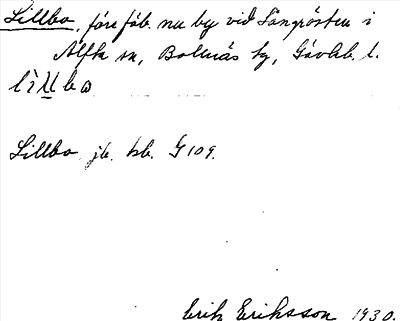 Lillbo, före fäb. nu by vid Långrösten i
Alfta sn, Bollnäs tg, Gävleb. l.
lillbo
Lillbo. jb. kb. G 109.
Erik Eriksson 1930.